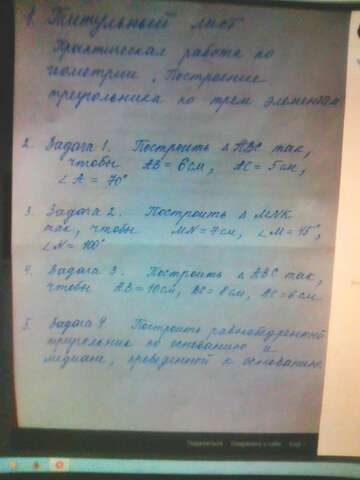 1. Титульный лист
Практическая работа по
геометрии. Построение
треугольника по трем элементам
2. Задача 1. Построить △ ABC так,
чтобы AB = 6 см, AC = 5 см,
∠A = 70°
3. Задача 2. Построить △ MNK
так, чтобы MN = 7 см, ∠M = 15°,
∠N = 100°
4. Задача 3. Построить △ ABC так,
чтобы AB = 10 см, BC = 8 см, AC = 6 см
5. Задача 4 Построить равнобедренный
треугольник по основанию и
медиане, проведенной к основанию.
Поделиться Сохранить к себе Ещё